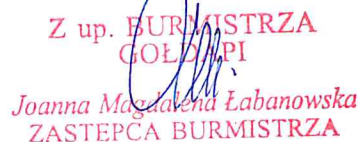 Z up. BURMISTRZA
GOŁDAPI
Joanna Magdalena Łabanowska
ZASTĘPCA BURMISTRZA